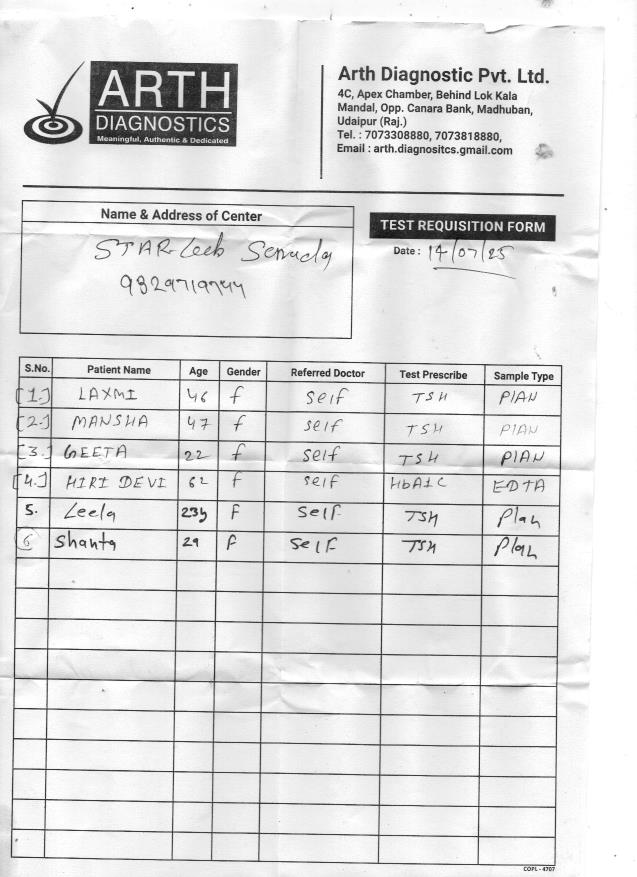 ARTH
DIAGNOSTICS
Meaningful, Authentic & Dedicated
Arth Diagnostic Pvt. Ltd.
4C, Apex Chamber, Behind Lok Kala
Mandal, Opp. Canara Bank, Madhuban,
Udaipur (Raj.)
Tel. : 7073308880, 7073818880,
Email : arth.diagnositcs.gmail.com
Name & Address of Center
STAR
TEST REQUISITION FORM
Date : 14/07/25
S.No. Patient Name Age Gender Referred Doctor Test Prescribe Sample Type
[1.] LAXMI 46 f self TSH PlAN
[2.] MANSHA 47 f self TSH PlAN
[3.] GEETA 22 f self TSH PlAN
[4.] HIRI DEVI 62 f self HbA1C EDTA
5. Leela 23y F Self TSH Plan
6 Shanta 29 F Self TSH Plan
COPL - 4707